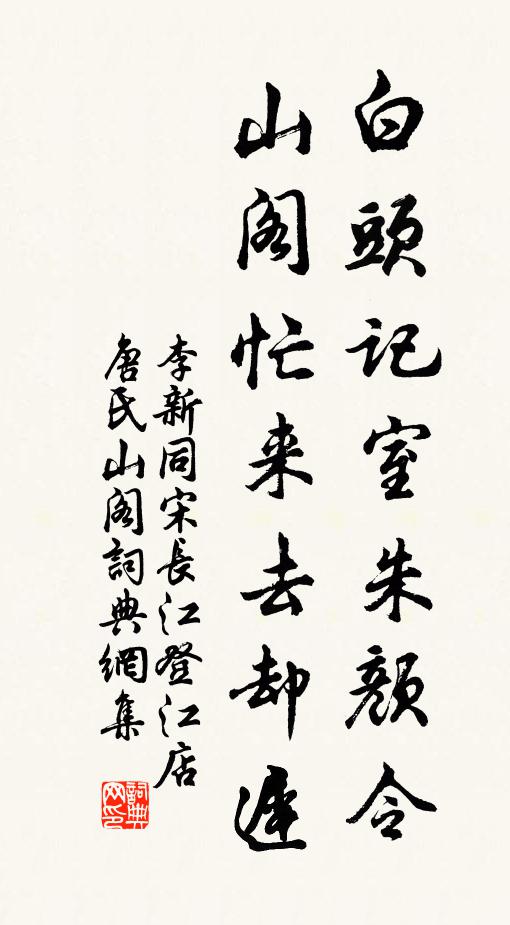 白頭記室朱顏令
山閣忙来去却遲
李新同宋長江登江店
唐氏山閣詞典網集
詞典网印